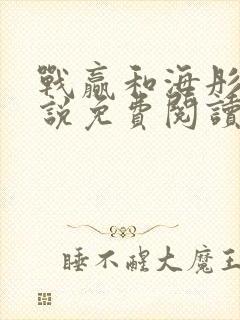 戰贏和海彤
説免費閱讀
睡不醒大魔王